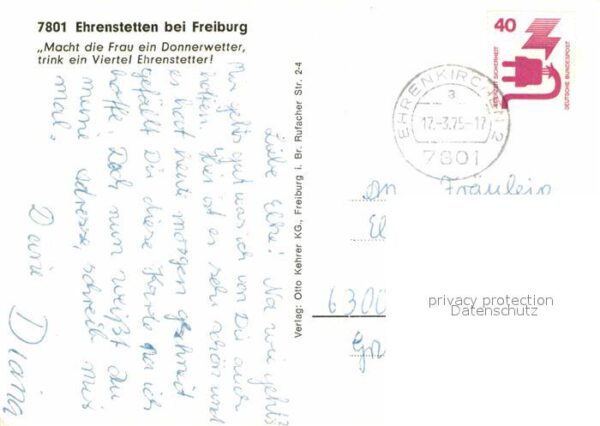 7801 Ehrenstetten bei Freiburg
„Macht die Frau ein Donnerwetter,
trink ein Viertel Ehrenstetter!
Liebe Elke! Na wie gehts?
Mir gehts gut was ich von Dir auch
hoffe. Hier ist es sehr schön und
es hat heute morgen geschneit
gefällt Dir diese Karte ja ich
hoffe. Doch nun weißt du
meine Adresse, schreib mir
mal.
Deine Diana
Verlag: Otto Kehrer KG., Freiburg i. Br. Rufacher Str. 2-4
40
JEDERZEIT SICHERHEIT
DEUTSCHE BUNDESPOST
EHRENKIRCHEN 2
a
12.-3.75-17
7801
An Fräulein
El
6300
privacy protection
Datenschutz